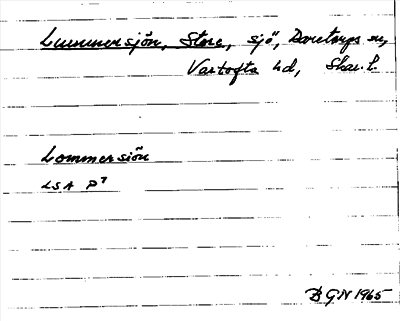 Lummersjön, Stora, sjö, Daretorps sn,
Vartofta hd, Skar. l.
Lommersiön
LSA P7
BGN 1965